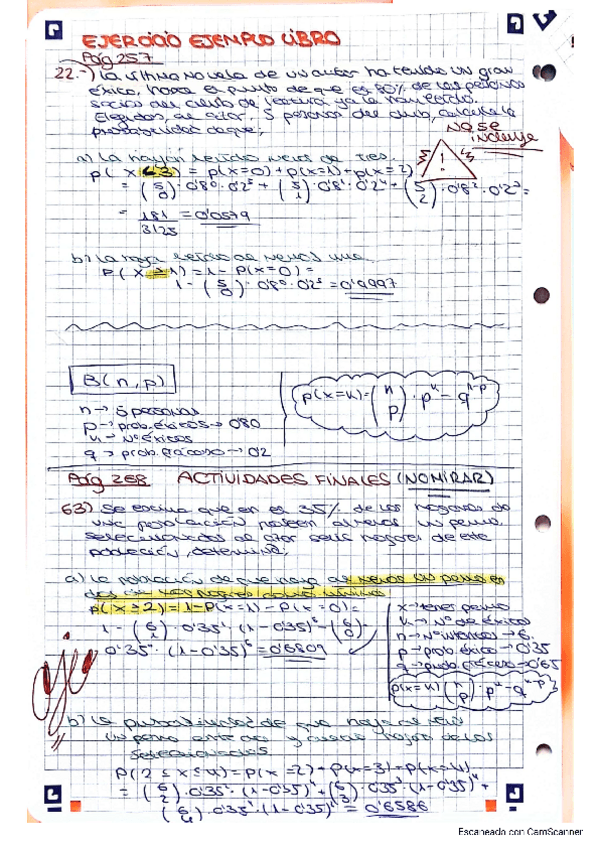 EJERCICIO EJEMPLO LIBRO
Pág 257
22.-) La última novela de un autor ha tenido un gran
éxito, hasta el punto de que el 80% de las personas
socios del de lectura ya la han leído.
Elegidos, al azar, 5 personas del club, calcula la
probabilidad de que;
NO SE
incluye
a) La hayan leído menos de tres.
P( X < 3) = P(x=0) + P(x=1) + P(x=2) =
= (5 0) · 0'8⁰ · 0'2⁵ + (5 1) · 0'8¹ · 0'2⁴ + (5 2) · 0'8² · 0'2³ =
= 181/3125 = 0'0579
b) La haya leído al menos uno
P( X ≥ 1) = 1 - P(x=0) =
1 - (5 0) · 0'8⁰ · 0'2⁵ = 0'9997
B(n,p)
n → 5 personas
p → prob. éxitos → 0'80
k → Nº éxitos
q → prob. fracaso → 0'2
P(x=k) = (n p) · pᵏ - qⁿ⁻ᵖ
Pág 258 ACTIVIDADES FINALES (NO MIRAR)
63) Se estima que en el 35% de los hogares de
una población poseen al menos un perro.
Seleccionados al azar seis hogares de esta
población, determina;
a) La de que haya al menos un perro en
dos
P(X ≥ 2) = 1 - P(x=1) - P(x=0) =
1 - (6 1) · 0'35¹ · (1-0'35)⁵ - (6 0)
0'35⁰ · (1-0'35)⁶ = 0'6809
x → tener perro
k → Nº de éxitos
n → Nº → 6
p → prob. éxito → 0'35
q → prob. fracaso → 0'65
P(x=k) (n p) · pᵏ - qⁿ⁻ᵖ
Ojo
b) La probabilidad de que haya al menos
un perro entre dos y cuatro hogares de los
seleccionados
P(2 ≤ x ≤ 4) = P(x=2) + P(x=3) + P(x=4)
= (6 2) · 0'35² · (1-0'35)⁴ + (6 3) · 0'35³ · (1-0'35)
(6 4) · 0'35⁴ · (1-0'35)² = 0'6586
Escaneado con CamScanner